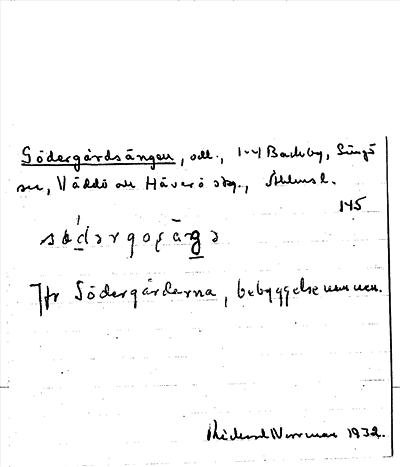 Södergårdsängen, odl., 1-4 Backby, Singö
sn, Väddö och Häverö skg., Sthlms l.
145
Jfr Södergårderna, bebyggelsenamnen.
Rickard Norrman 1932.